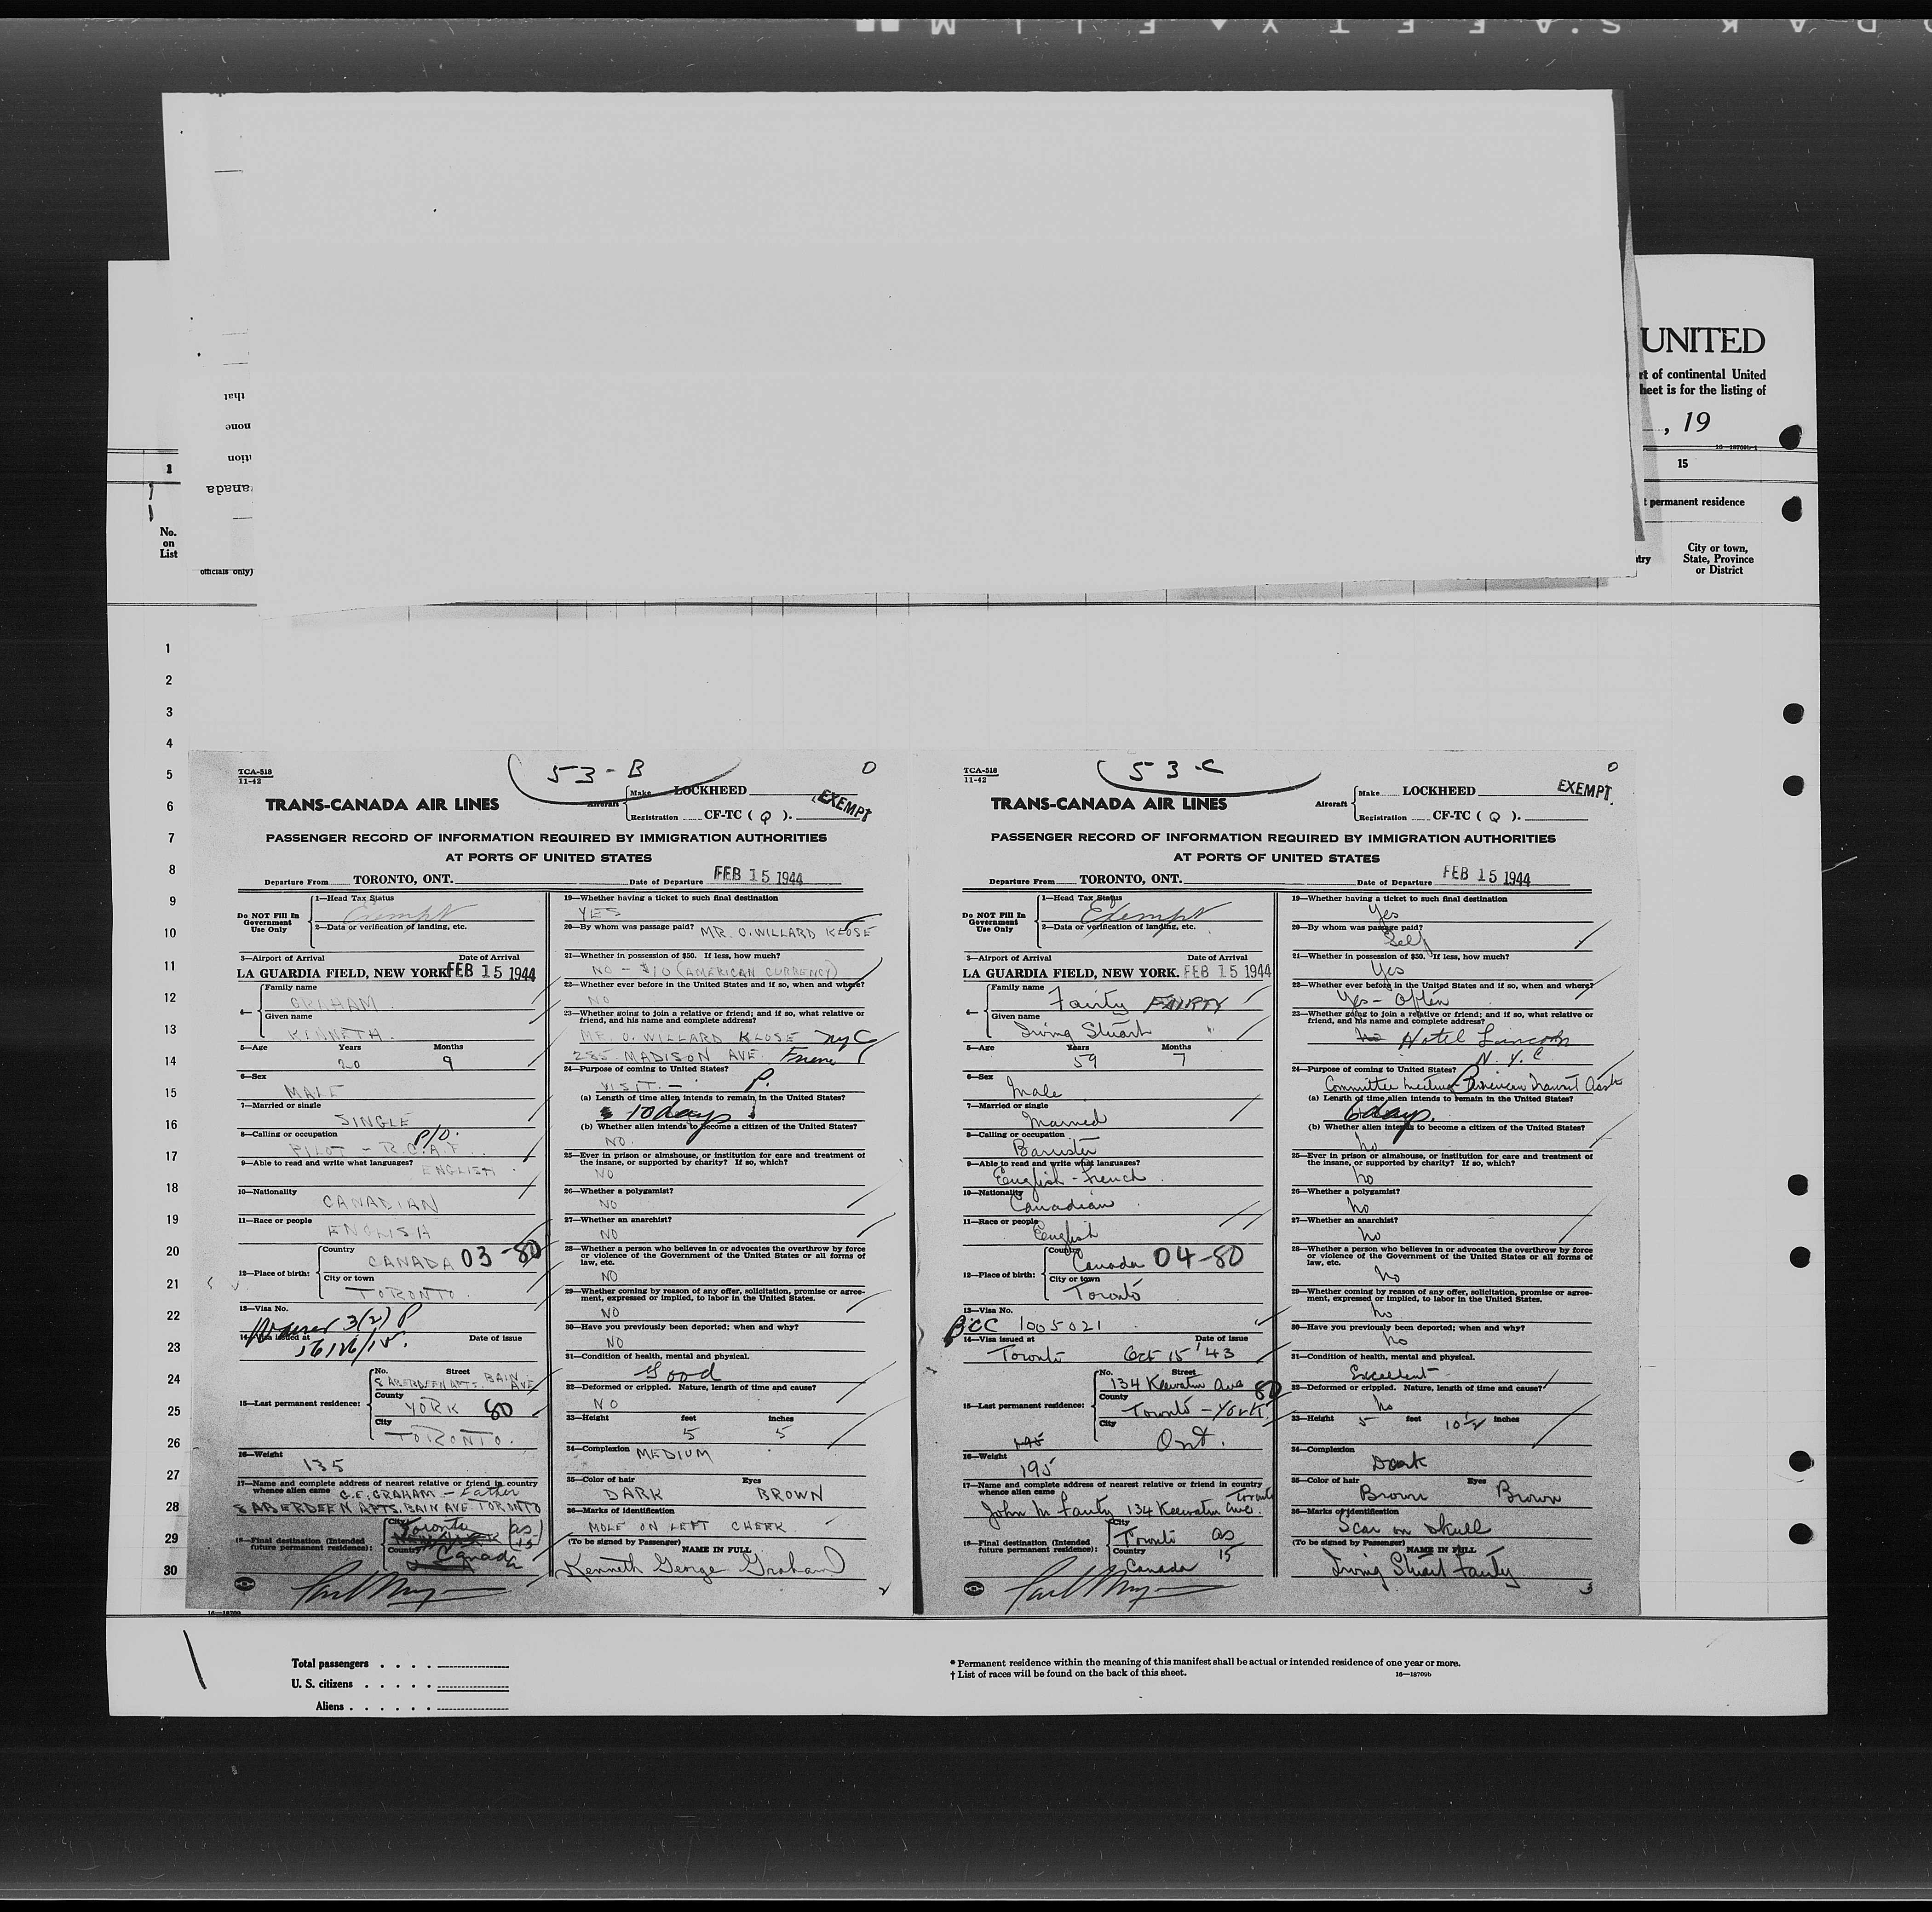 UNITED
rt of continental United
heet is for the listing of
, 19
16—18709b-1
1
15
t permanent residence
No.
on
List
ntry
City or town,
State, Province
or District
that
none
officials only)
1
2
3
4
5
6
7
8
9
10
11
12
13
14
15
16
17
18
19
20
21
22
23
24
25
26
27
28
29
30
TCA-518
11-42
53-B
0
TRANS-CANADA AIR LINES
Aircraft
Make LOCKHEED
Registration CF-TC ( Q ).
EXEMPT
PASSENGER RECORD OF INFORMATION REQUIRED BY IMMIGRATION AUTHORITIES
AT PORTS OF UNITED STATES
Departure From TORONTO, ONT. Date of Departure FEB 15 1944
Do NOT Fill In
Government
Use Only
1—Head Tax Status
Exempt
2—Data or verification of landing, etc.
3—Airport of Arrival Date of Arrival
LA GUARDIA FIELD, NEW YORK FEB 15 1944
4—
Family name
GRAHAM
Given name
KENNETH.
5—Age Years Months
20 9
6—Sex
MALE
7—Married or single
SINGLE
8—Calling or occupation P/O.
PILOT - R.C.A.F.
9—Able to read and write what languages? ENGLISH
10—Nationality
CANADIAN
11—Race or people
ENGLISH
12—Place of birth:
Country
CANADA 03-80
City or town
TORONTO.
13—Visa No.
3(2) P
14—Visa issued at Date of issue
15—Last permanent residence:
No. Street
8 ABERDEEN APTS. BAIN AVE
County
YORK 80
City
TORONTO.
16—Weight
135
17—Name and complete address of nearest relative or friend in country
whence alien came G.E. GRAHAM - Father
8 ABERDEEN APTS. BAIN AVE TORONTO
18—Final destination (Intended
future permanent residence):
City
Toronto as
15
Country
Canada
16—18709
19—Whether having a ticket to such final destination
YES
20—By whom was passage paid? MR. O. WILLARD KLOSE
21—Whether in possession of $50. If less, how much?
NO - $10 (AMERICAN CURRENCY)
22—Whether ever before in the United States and if so, when and where?
NO
23—Whether going to join a relative or friend; and if so, what relative or
friend, and his name and complete address?
MR. O. WILLARD KLOSE NYC
285 MADISON AVE. Friend
24—Purpose of coming to United States?
VISIT. - P.
(a) Length of time alien intends to remain in the United States?
10 days
(b) Whether alien intends to become a citizen of the United States?
NO.
25—Ever in prison or almshouse, or institution for care and treatment of
the insane, or supported by charity? If so, which?
NO
26—Whether a polygamist?
NO
27—Whether an anarchist?
NO
28—Whether a person who believes in or advocates the overthrow by force
or violence of the Government of the United States or all forms of
law, etc.
NO
29—Whether coming by reason of any offer, solicitation, promise or agree-
ment, expressed or implied, to labor in the United States.
NO
30—Have you previously been deported; when and why?
NO
31—Condition of health, mental and physical.
Good
32—Deformed or crippled. Nature, length of time and cause?
NO
33—Height feet inches
5 5
34—Complexion MEDIUM
35—Color of hair Eyes
DARK BROWN
36—Marks of identification
MOLE ON LEFT CHEEK.
(To be signed by Passenger)
NAME IN FULL
Kenneth George Graham
2
TCA-518
11-42
53-C
0
TRANS-CANADA AIR LINES
Aircraft
Make LOCKHEED
Registration CF-TC ( Q ).
EXEMPT.
PASSENGER RECORD OF INFORMATION REQUIRED BY IMMIGRATION AUTHORITIES
AT PORTS OF UNITED STATES
Departure From TORONTO, ONT. Date of Departure FEB 15 1944
Do NOT Fill In
Government
Use Only
1—Head Tax Status
Exempt
2—Data or verification of landing, etc.
3—Airport of Arrival Date of Arrival
LA GUARDIA FIELD, NEW YORK. FEB 15 1944
4—
Family name
Fairty FAIRTY
Given name
Irving Stuart
5—Age Years Months
59 7
6—Sex
Male
7—Married or single
Married
8—Calling or occupation
Barrister
9—Able to read and write what languages?
English - French
10—Nationality
Canadian
11—Race or people
English
12—Place of birth:
Country
Canada 04-80
City or town
Toronto
13—Visa No.
BCC 1005021
14—Visa issued at Date of issue
Toronto Oct 15 '43
15—Last permanent residence:
No. Street
134 Keewatin Ave 80
County
Toronto - York
City
Ont.
195
16—Weight
195
17—Name and complete address of nearest relative or friend in country
whence alien came Toronto
John M Fairty 134 Keewatin Ave.
18—Final destination (Intended
future permanent residence):
City
Toronto as
Country 15
Canada
19—Whether having a ticket to such final destination
Yes
20—By whom was passage paid?
Self
21—Whether in possession of $50. If less, how much?
Yes
22—Whether ever before in the United States and if so, when and where?
Yes - Often
23—Whether going to join a relative or friend; and if so, what relative or
friend, and his name and complete address?
No Hotel Lincoln
N.Y.C
24—Purpose of coming to United States?
Committee Meeting - American Transit Assn
(a) Length of time alien intends to remain in the United States?
6 days.
(b) Whether alien intends to become a citizen of the United States?
No
25—Ever in prison or almshouse, or institution for care and treatment of
the insane, or supported by charity? If so, which?
No
26—Whether a polygamist?
No
27—Whether an anarchist?
No
28—Whether a person who believes in or advocates the overthrow by force
or violence of the Government of the United States or all forms of
law, etc.
No
29—Whether coming by reason of any offer, solicitation, promise or agree-
ment, expressed or implied, to labor in the United States.
No
30—Have you previously been deported; when and why?
No
31—Condition of health, mental and physical.
Excellent
32—Deformed or crippled. Nature, length of time and cause?
No
33—Height 5 feet 10 1/2 inches
34—Complexion
Dark
35—Color of hair Eyes
Brown Brown
36—Marks of identification
Scar on Skull
(To be signed by Passenger)
NAME IN FULL
Irving Stuart Fairty
3
Total passengers . . . .
U. S. citizens . . . . .
Aliens . . . . . .
* Permanent residence within the meaning of this manifest shall be actual or intended residence of one year or more.
† List of races will be found on the back of this sheet.
16—18709b